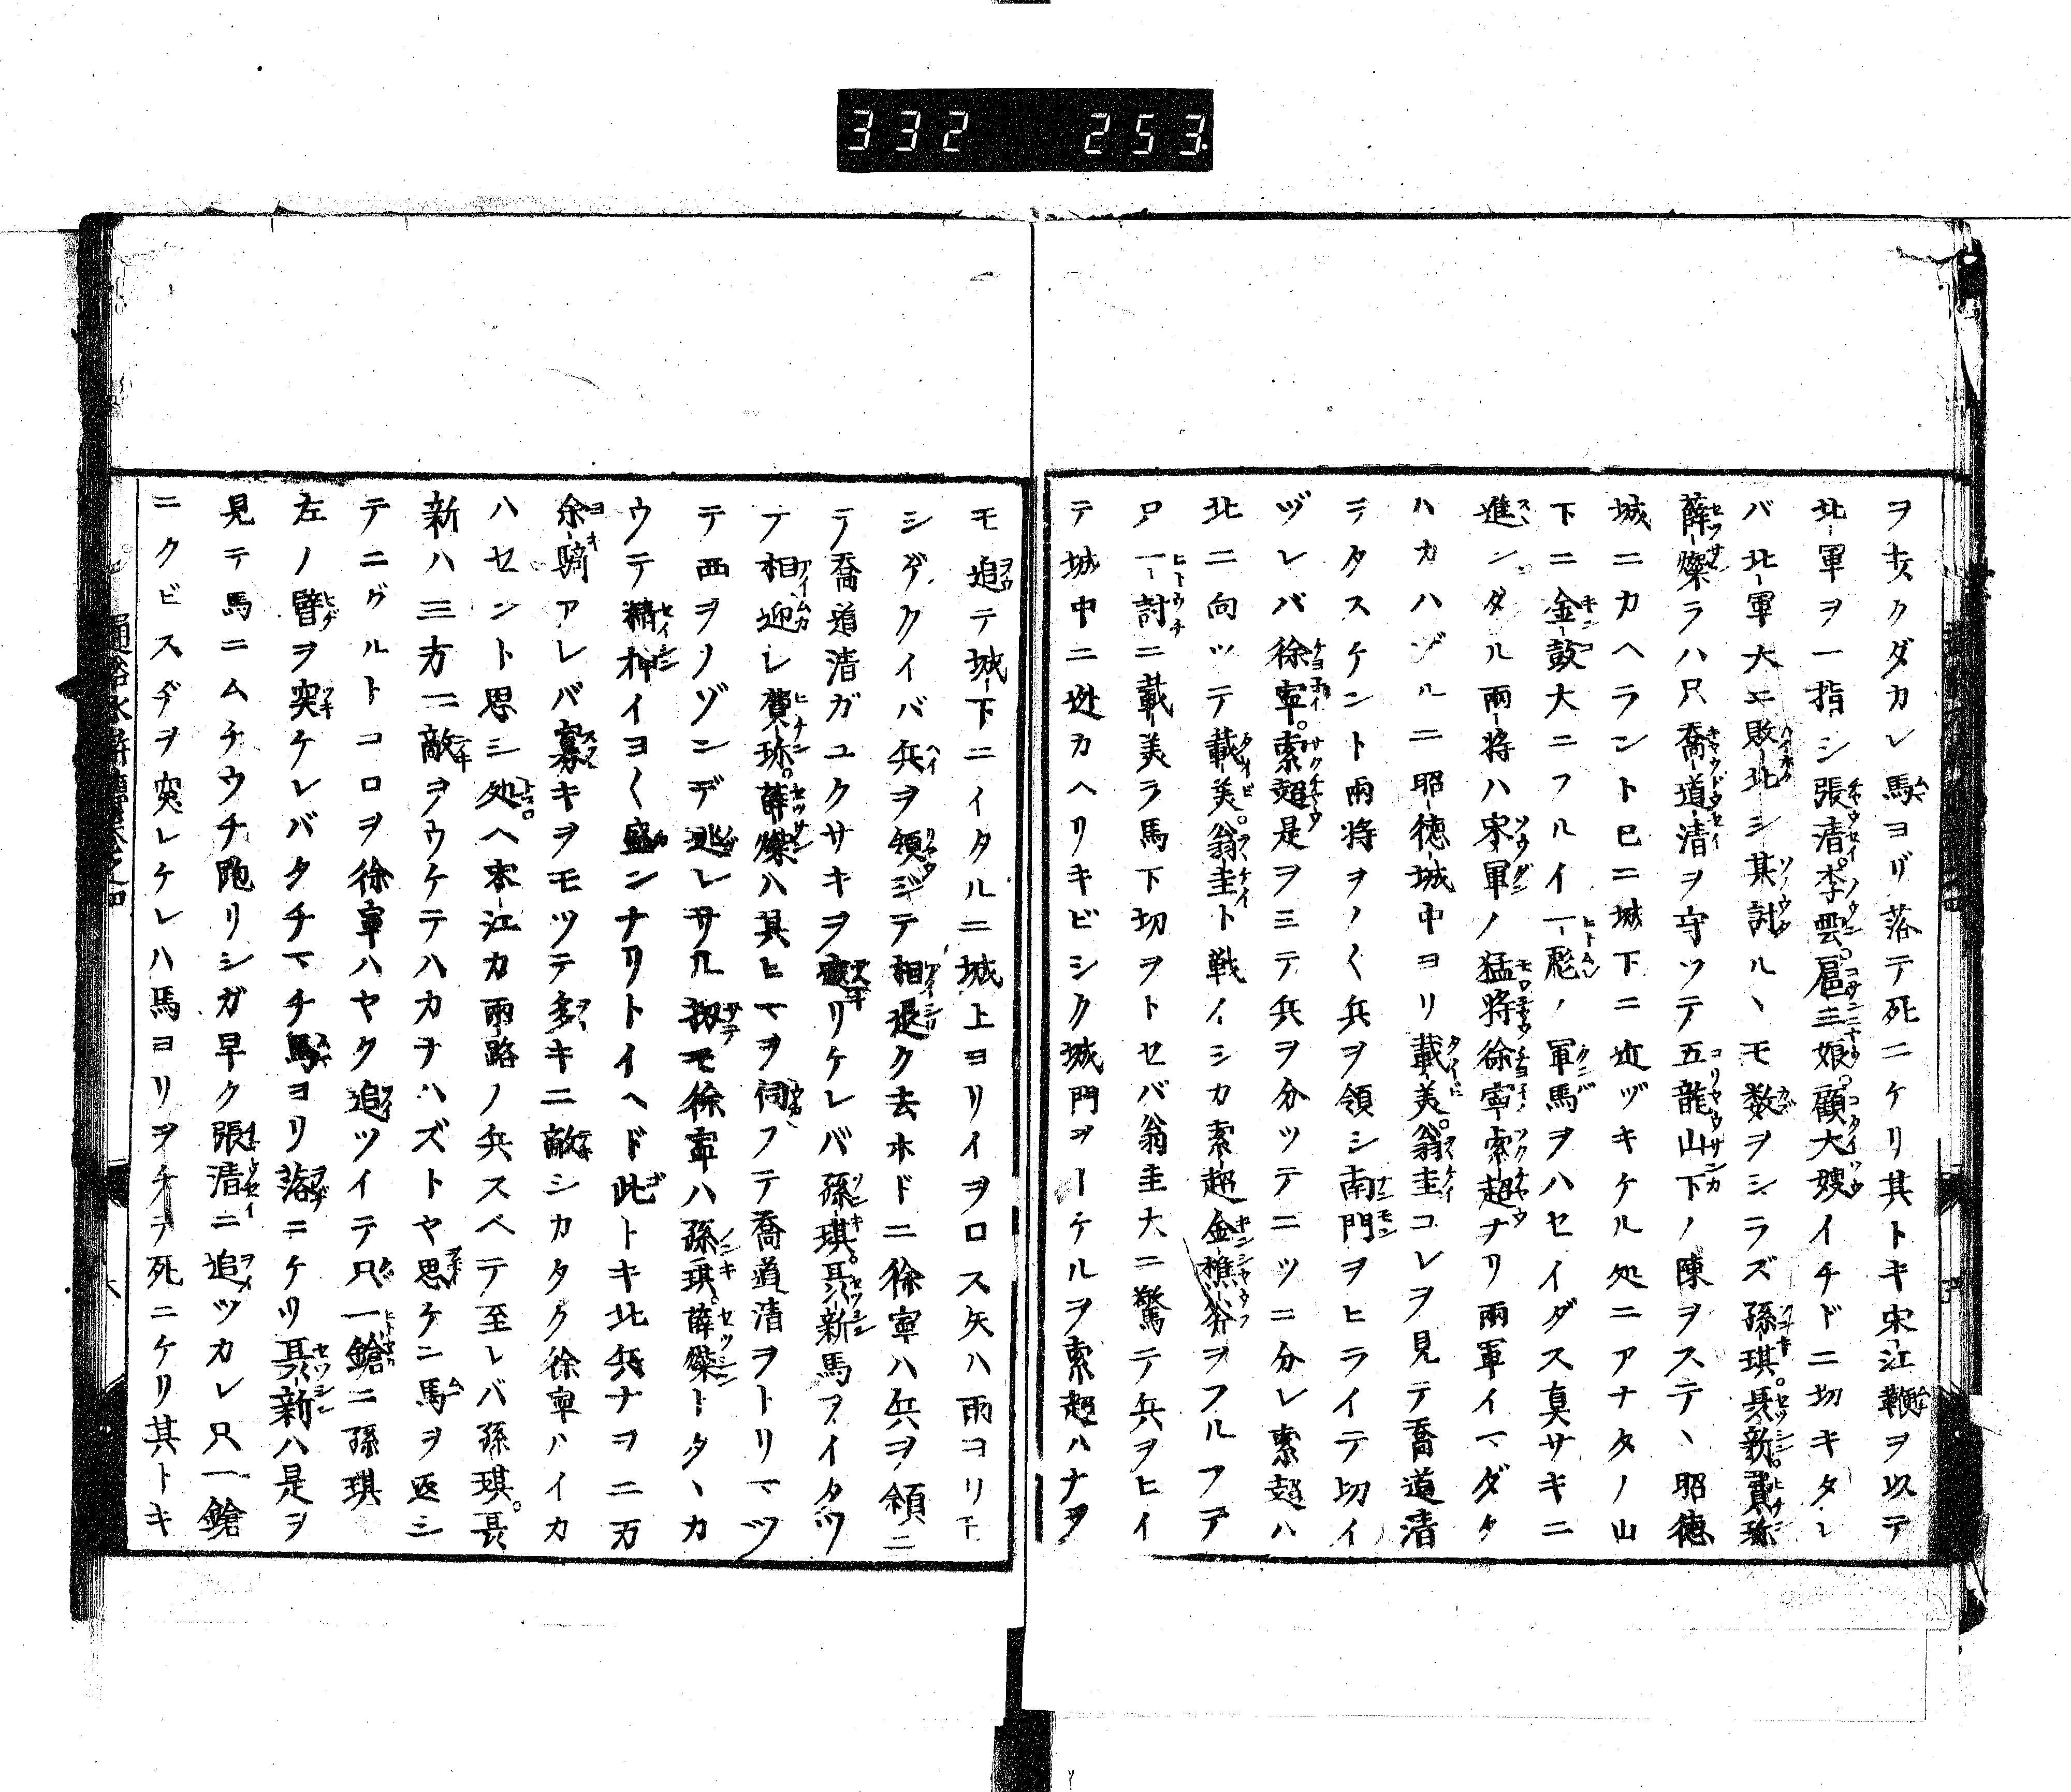 332 253
ヲキクダカレ馬ヨリ落テ死ニケリ其トキ宋江鞭ヲ以テ
北軍ヲ一指シ張清李雲扈三娘顧大嫂イチドニ切キタレ
バ北軍大ニ敗北シ其討ルヽモ数ヲシラズ孫琪聶新費珍
薛燦ラハ只喬道清ヲ守ツテ五龍山下ノ陳ヲステヽ昭徳
城ニカヘラント已ニ城下ニ近ヅキケル処ニアナタノ山
下ニ金鼓大ニフルイ一彪ノ軍馬ヲハセイダス真サキニ
進ンダル両将ハ宋軍ノ猛将徐寧索超ナリ両軍イマダタ
ハカハザルニ昭徳城中ヨリ戴美翁圭コレヲ見テ喬道清
ヲタスケント両将ヲノ〱兵ヲ領シ南門ヲヒライテ切イ
ヅレバ徐寧索超是ヲミテ兵ヲ分ツテ二ツニ分レ索超ハ
北ニ向ツテ戴美翁圭ト戦イシカ索超金樵斧ヲフルフテ
只一討ニ戴美ラ馬下切ヲトセバ翁圭大ニ驚テ兵ヲヒイ
テ城中ニ迯カヘリキビシク城門ヲトケルヲ索超ハナヲ
モ追テ城下ニイタルニ城上ヨリイヲロス矢ハ雨ヨリ下
シゲクイバ兵ヲ領ジテ相退ク去ホドニ徐寧ハ兵ヲ領ニ
テ喬道清ガユクサキヲ遮リケレバ孫琪聶新馬ヲイタツ
テ相迎レ費珍薛燦ハ其ヒマヲ伺フテ喬道清ヲトリマツ
テ西ヲノゾンデ逃レサル扨モ徐寧ハ孫琪薛燦トタヽカ
ウテ精神イヨ〱盛ンナリトイヘド此トキ北兵ナヲ二万
余騎アレバ寡キヲモツテ多キニ敵シカタク徐寧ハイカ
ハセント思シ処ヘ宋江カ両路ノ兵スベテ至レバ孫琪聶
新ハ三方ニ敵ヲウケテハカナハズトヤ思ケン馬ヲ返シ
テニグルトコロヲ徐寧ハヤク追ツイテ只一鎗ニ孫琪
左ノ臂ヲ突ケレバタチマチ馬ヨリ落ニケリ聶新ハ是ヲ
見テ馬ニムチウチ跑リシガ早ク張清ニ追ツカレ只一鎗
ニクビスヂヲ突レケレハ馬ヨリヲチテ死ニケリ其トキ